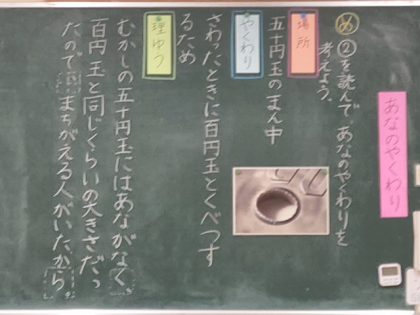 あなのやくわり
め ②を読んで、あなのやくわりを
考えよう。
場所
五十円玉のまん中
やくわり
さわったときに百円玉とくべつす
るため
理ゆう
むかしの五十円玉にはあながなく
百円玉と同じくらいの大きさだっ
たので、まちがえる人がいたから。